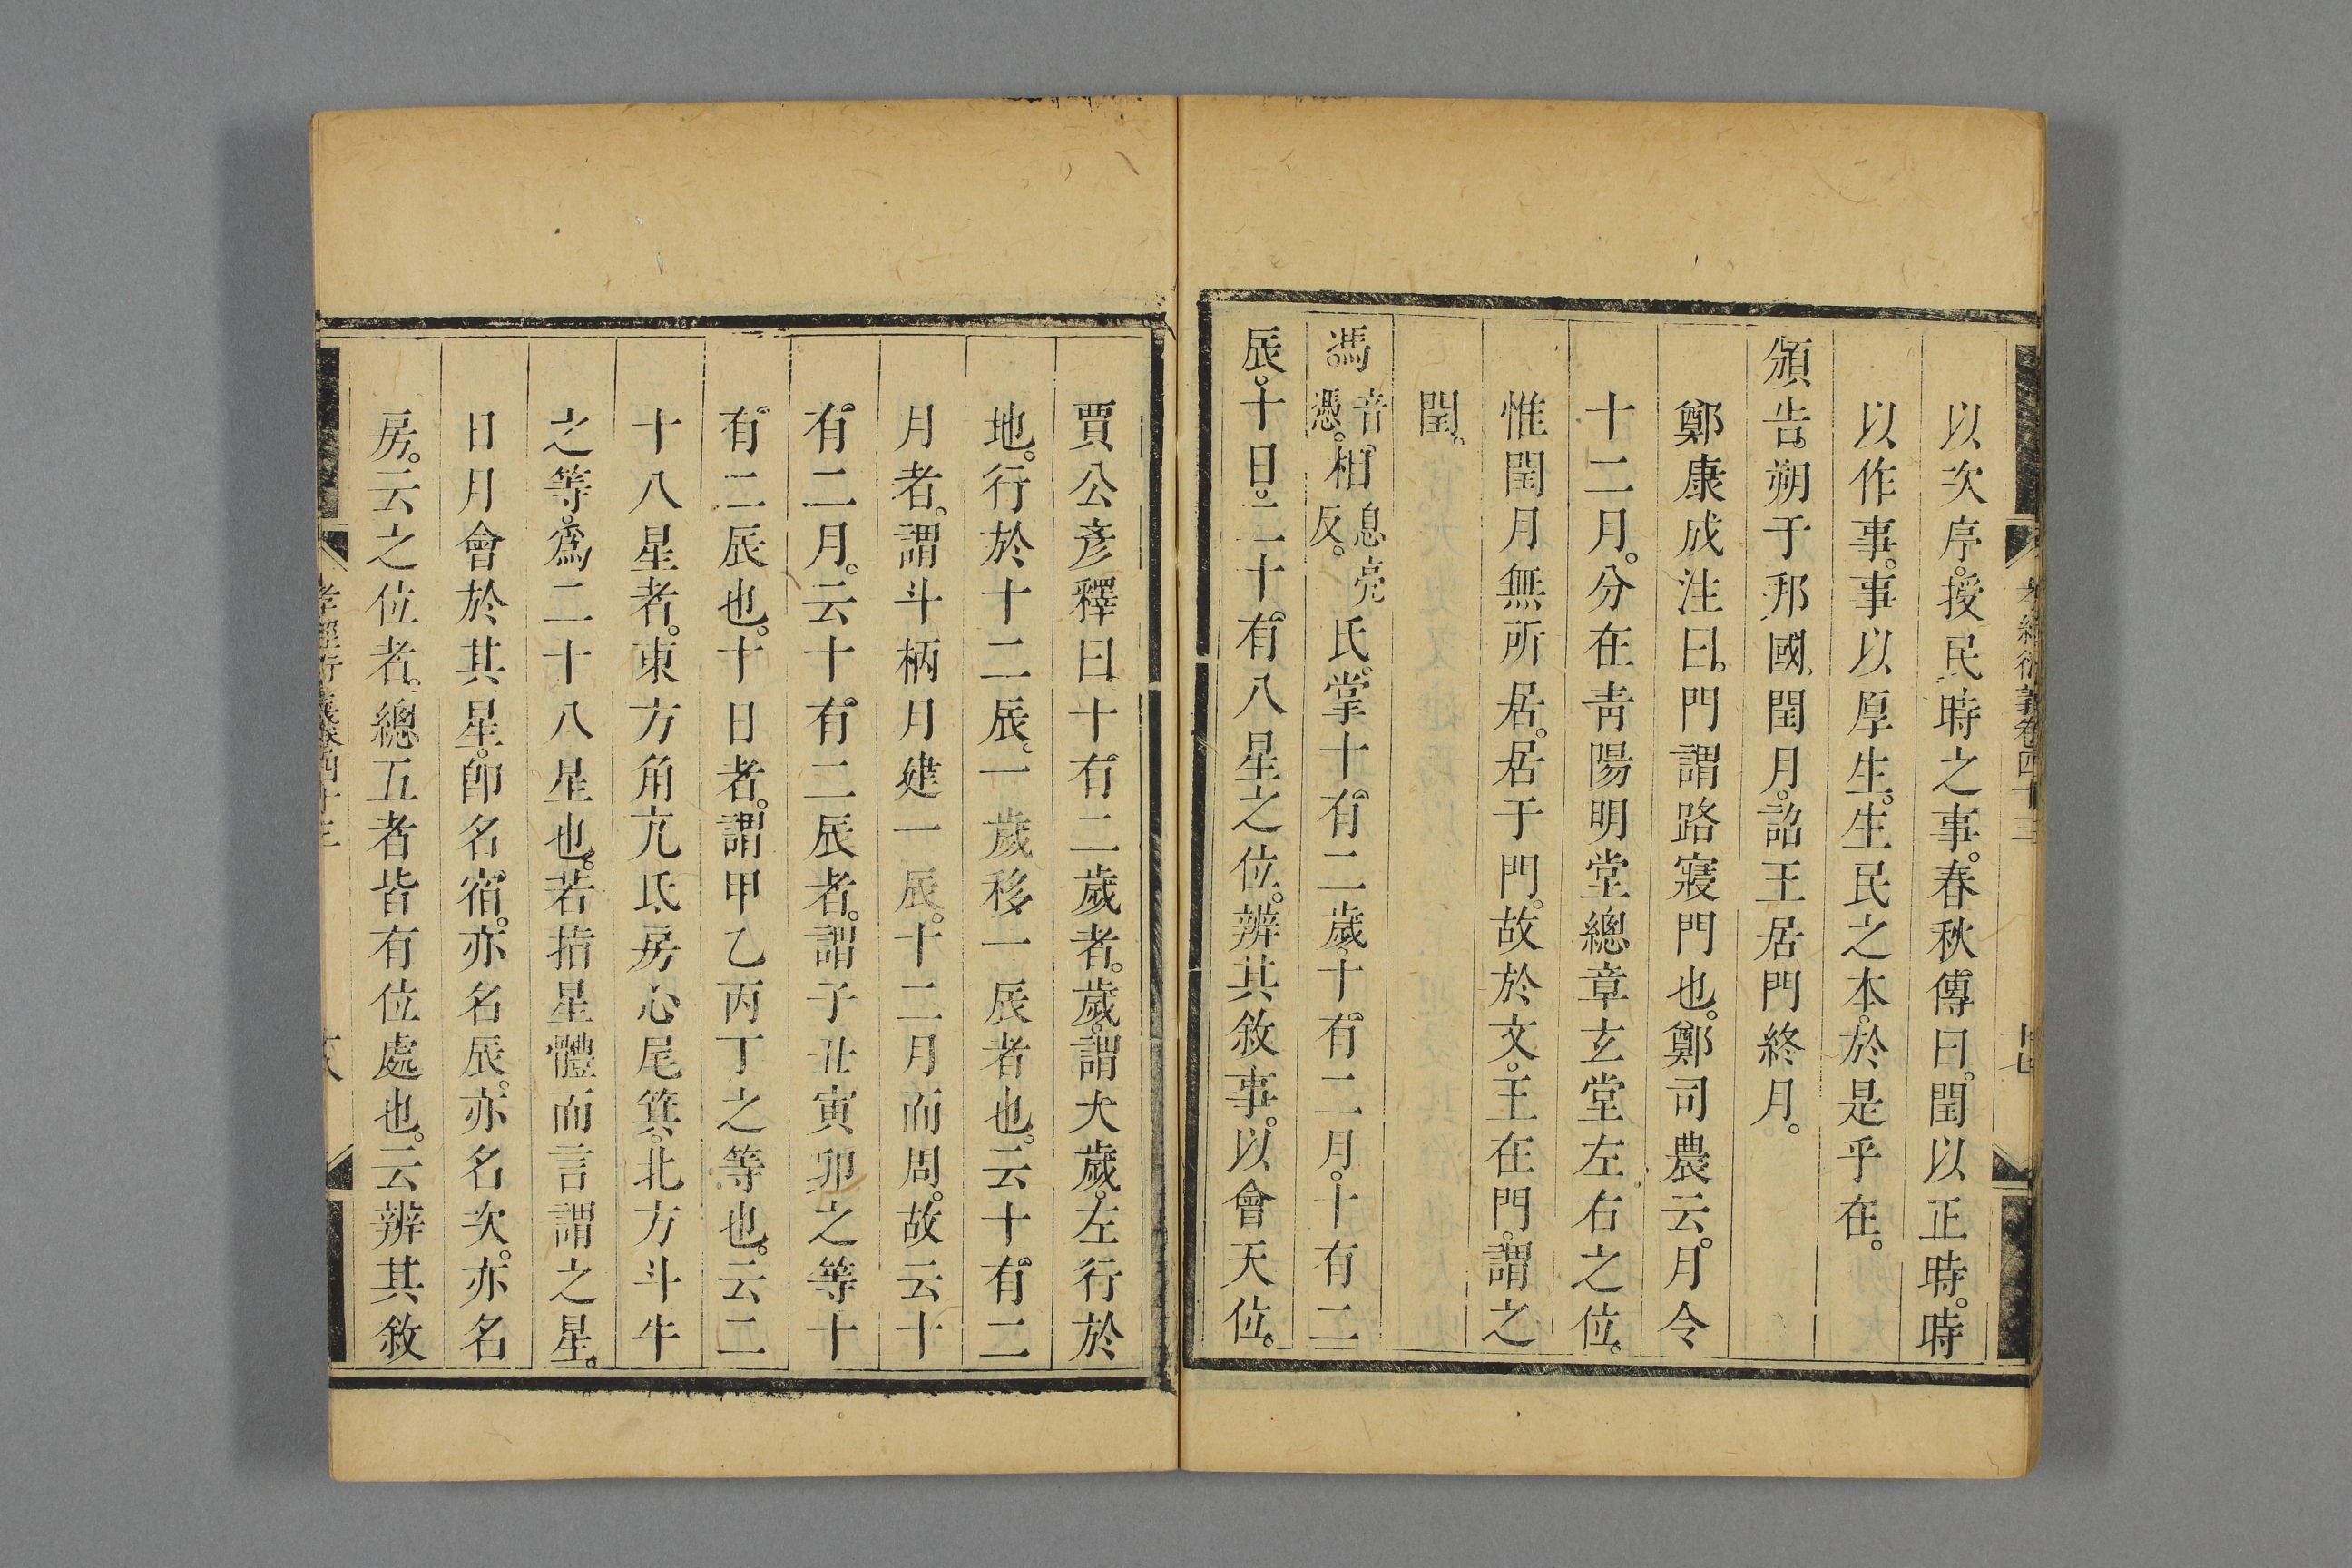 孝經衍義卷四十三
以次序。授民時之事。春秋傳曰。閏以正時。時
以作事。事以厚生。生民之本。於是乎在。
頒告。朔于邦國。閏月。詔王居門終月。
鄭康成注曰。門謂路寢門也。鄭司農云。月令
十二月。分在青陽明堂總章玄堂左右之位。
惟閏月無所居。居于門。故於文。王在門。謂之
閏。
馮音憑。相息亮反。氏。掌十有二歲。十有二月。十有二
辰。十日。二十有八星之位。辨其敘事。以會天位。
賈公彥釋曰。十有二歲者。歲。謂大歲。左行於
地。行於十二辰。一歲移一辰者也。云十有二
月者。謂斗柄月建一辰。十二月而周。故云十
有二月。云十有二辰者。謂子丑寅卯之等十
有二辰也。十日者。謂甲乙丙丁之等也。云二
十八星者。東方角亢氐房心尾箕。北方斗牛
之等。爲二十八星也。若指星體而言謂之星。
日月會於其星。卽名宿。亦名辰。亦名次。亦名
房。云之位者。總五者皆有位處也。云辨其敘
孝經衍義卷四十三